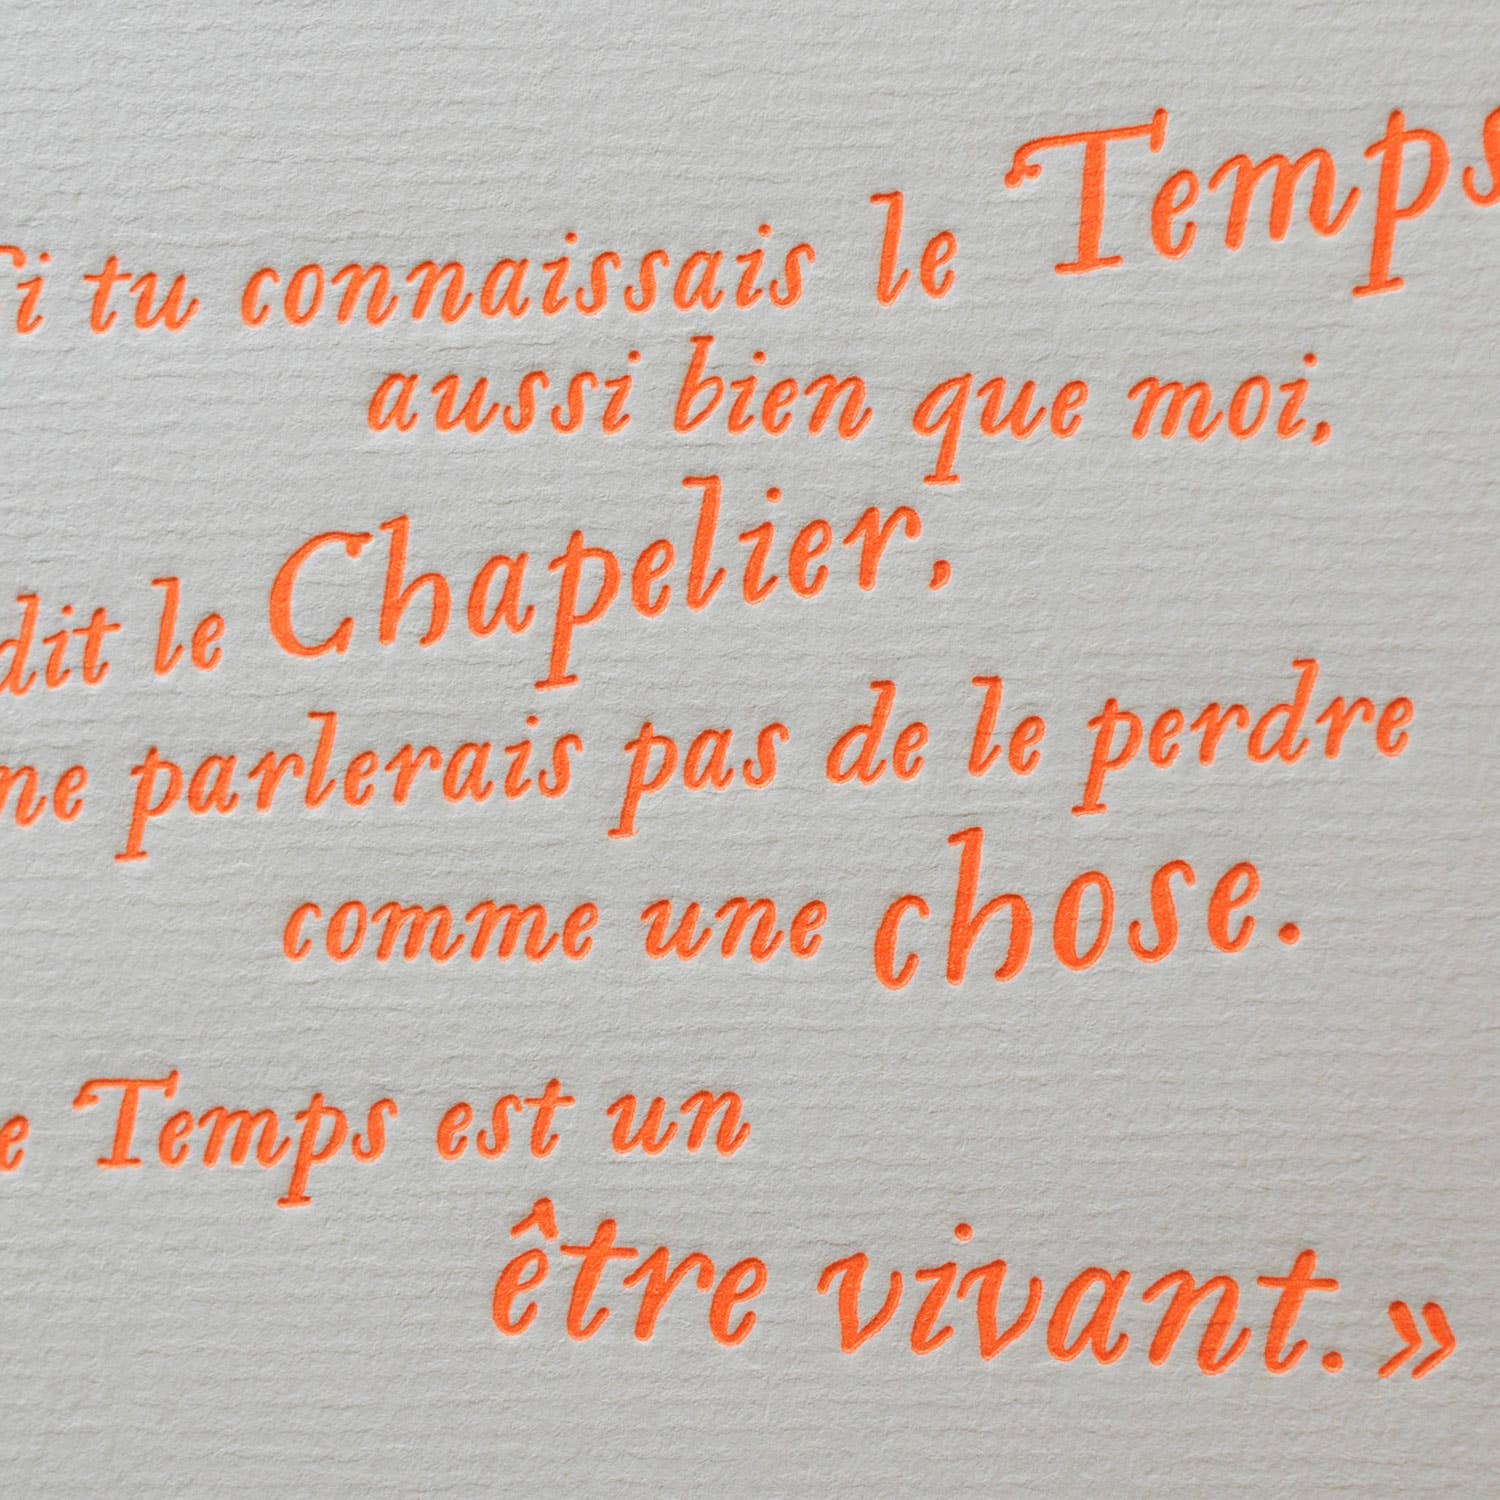 Si tu connaissais le Temps
aussi bien que moi,
dit le Chapelier,
ne parlerais pas de le perdre
comme une chose.
e Temps est un
être vivant.»